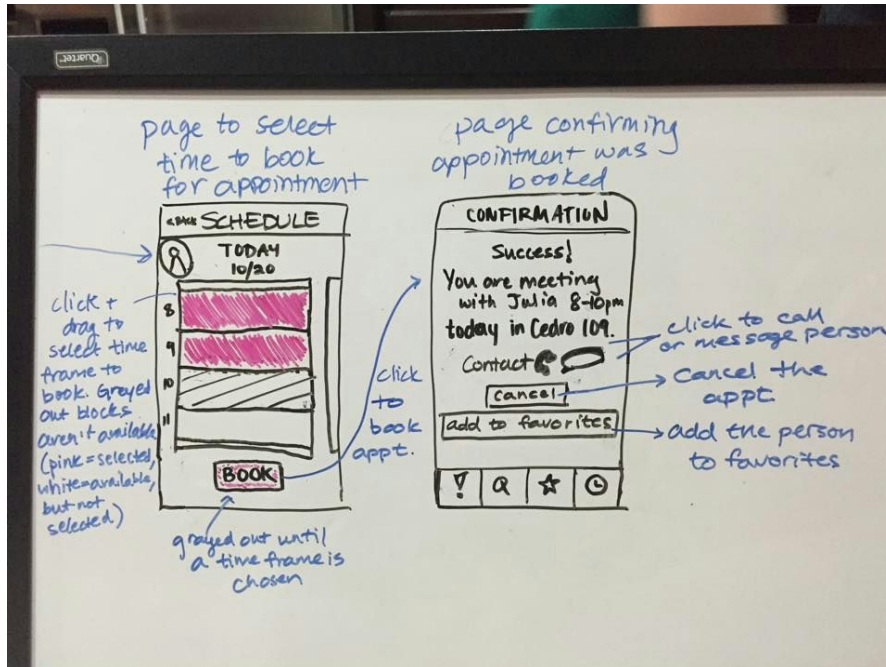 Quartet
page to select
time to book
for appointment
< BACK SCHEDULE
TODAY
10/20
8
9
10
11
BOOK
click +
drag to
select time
frame to
book. Grayed
out blocks
aren't available
(pink=selected,
white=available,
but not
selected)
grayed out until
a time frame is
chosen
click
to
book
appt.
page confirming
appointment was
booked
CONFIRMATION
Success!
You are meeting
with Julia 8-10pm
today in Cedro 109.
Contact
cancel
add to favorites
click to call
or message person
Cancel the
appt.
add the person
to favorites